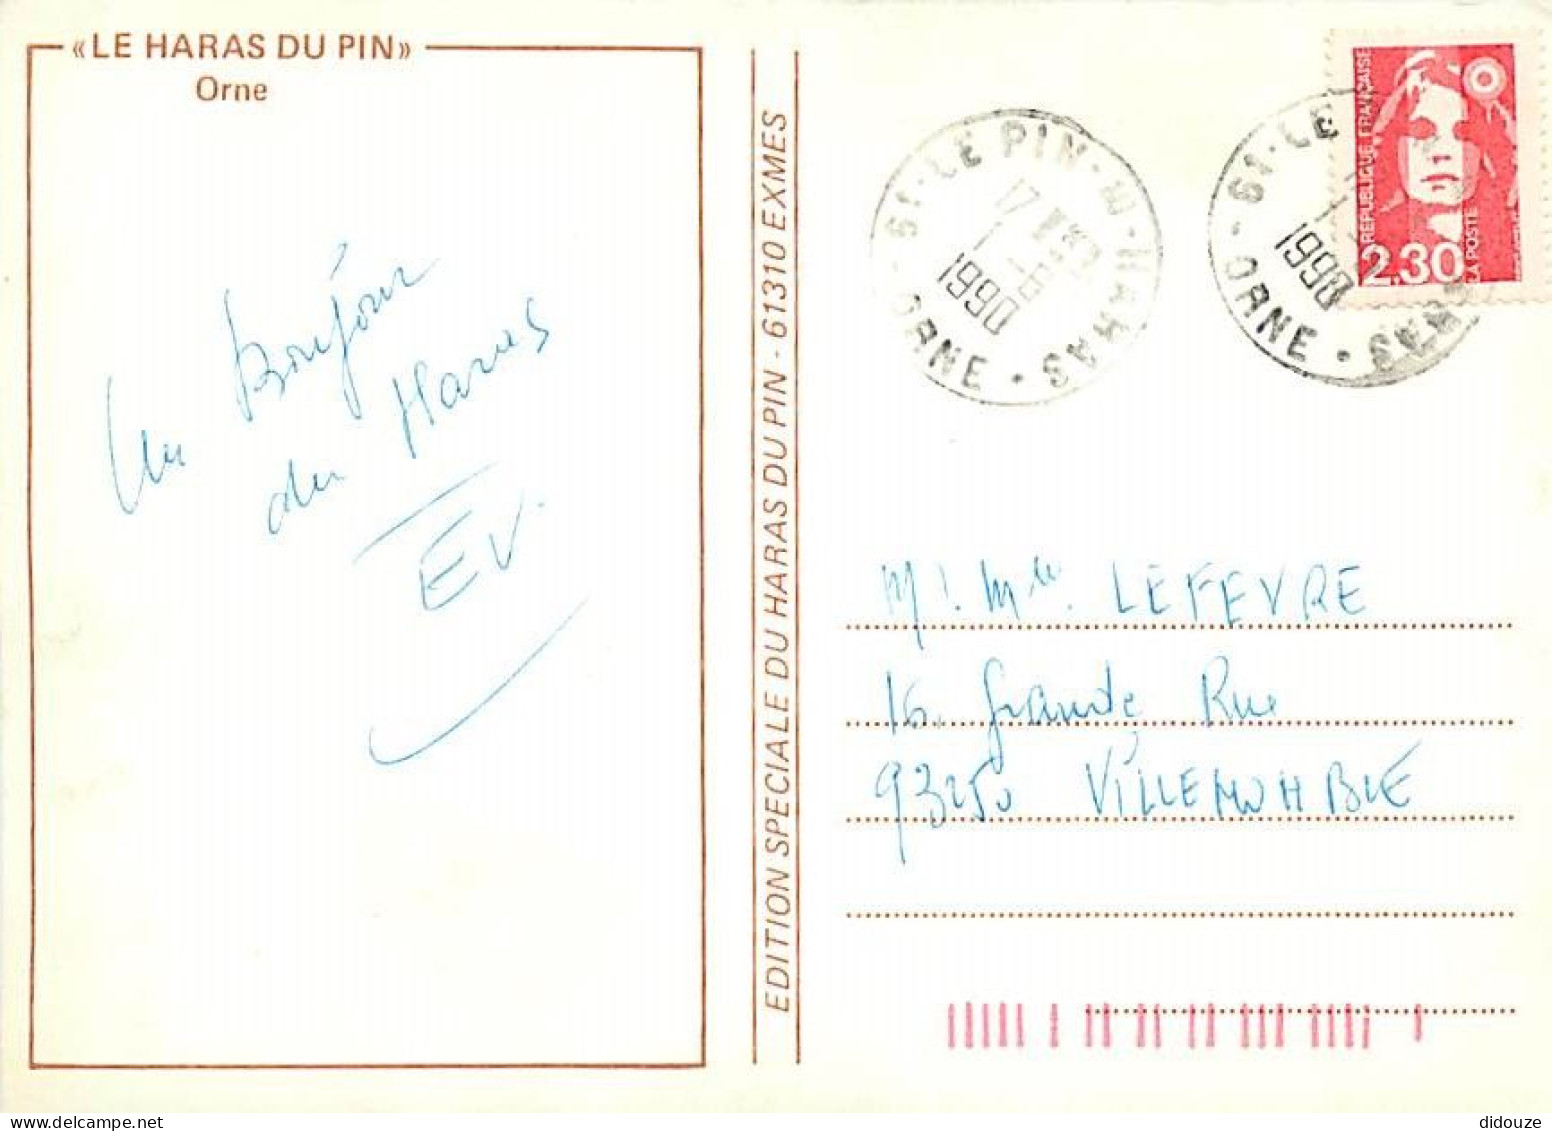 «LE HARAS DU PIN»
Orne
Un Bonjour
du Haras
EV.
EDITION SPECIALE DU HARAS DU PIN - 61310 EXMES
61 - LE PIN - AU - HARAS
17
1
1990
ORNE
61 - LE
HARAS
1990
ORNE
REPUBLIQUE FRANÇAISE
2,30
LA POSTE
M. Mme. LEFEVRE
16, Grande Rue
93250 VILLEMOMBLE
didouze